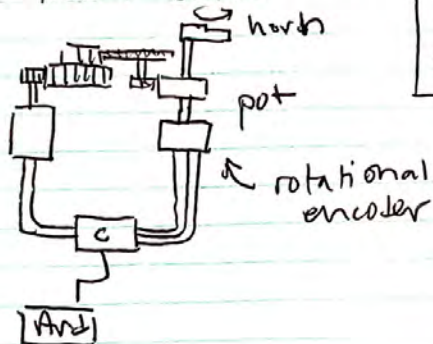 horn
pot
rotational
encoder
C
Ard